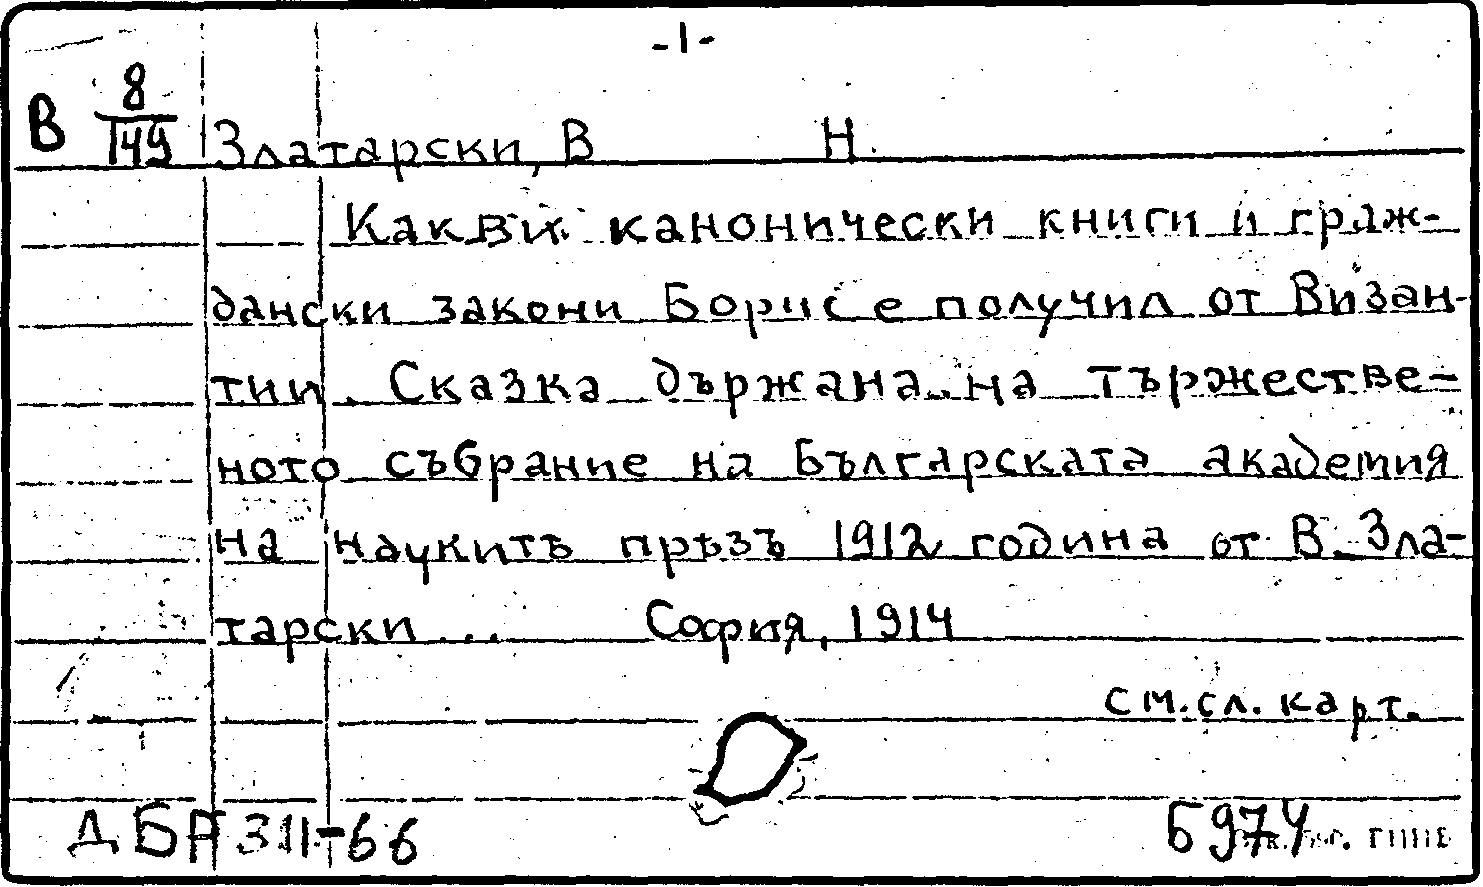 -1-
В 8/149 Златарски, В Н.
Какви канонически книги и граж-
дански закони Борис е получил от Визан-
тии. Сказка държана на тържестве-
ното събрание на Българската академия
на наукитѣ прѣзъ 1912 година от В. Зла-
тарски... София, 1914
см. сл. карт.
ДБА 311-66 Б974